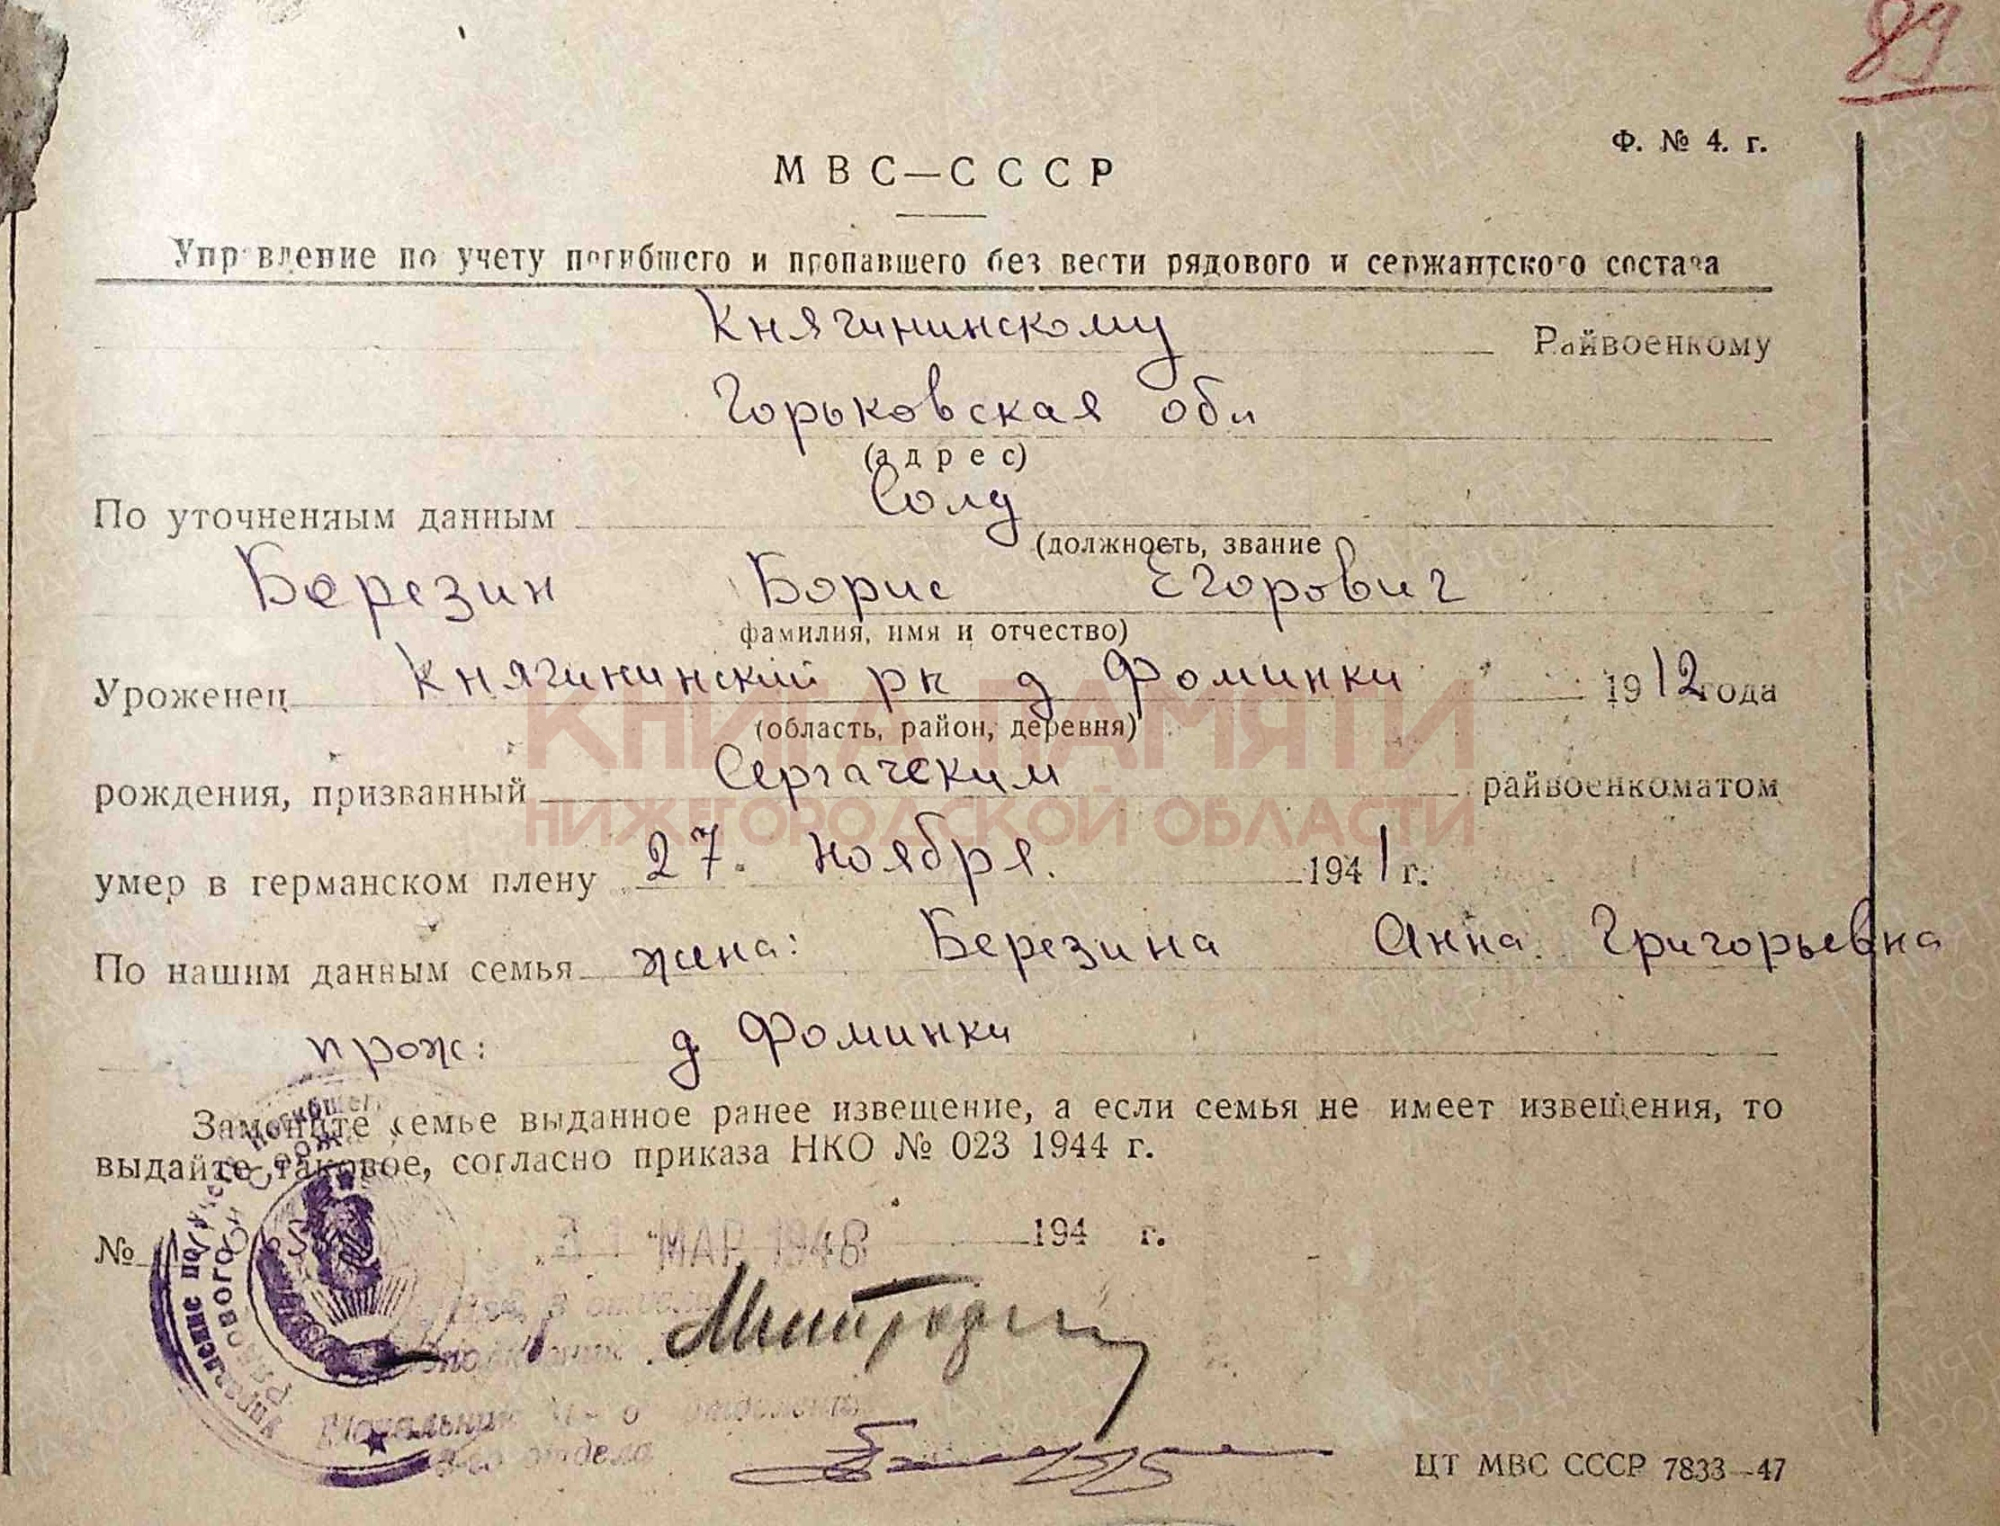 89
Ф. № 4. г.
МВС—СССР
Управление по учету погибшего и пропавшего без вести рядового и сержантского состава
Княгининскому Райвоенкому
Горьковская обл
(адрес)
По уточненным данным Солд
(должность, звание
Березин Борис Егорович
фамилия, имя и отчество)
Уроженец Княгининский рн д Фоминки 1912 года
(область, район, деревня)
КНИГА ПАМЯТИ
рождения, призванный Сергачским райвоенкоматом
НИЖЕГОРОДСКОЙ ОБЛАСТИ
умер в германском плену 27. ноября. 1941 г.
По нашим данным семья жена: Березина Анна Григорьевна
прож: д Фоминки
Замените семье выданное ранее извещение, а если семья не имеет извещения, то
выдайте таковое, согласно приказа НКО № 023 1944 г.
№ 31 МАР 1948 194 г.
Управление по
рядового
Начальник отделения
отдела
ЦТ МВС СССР 7833—47